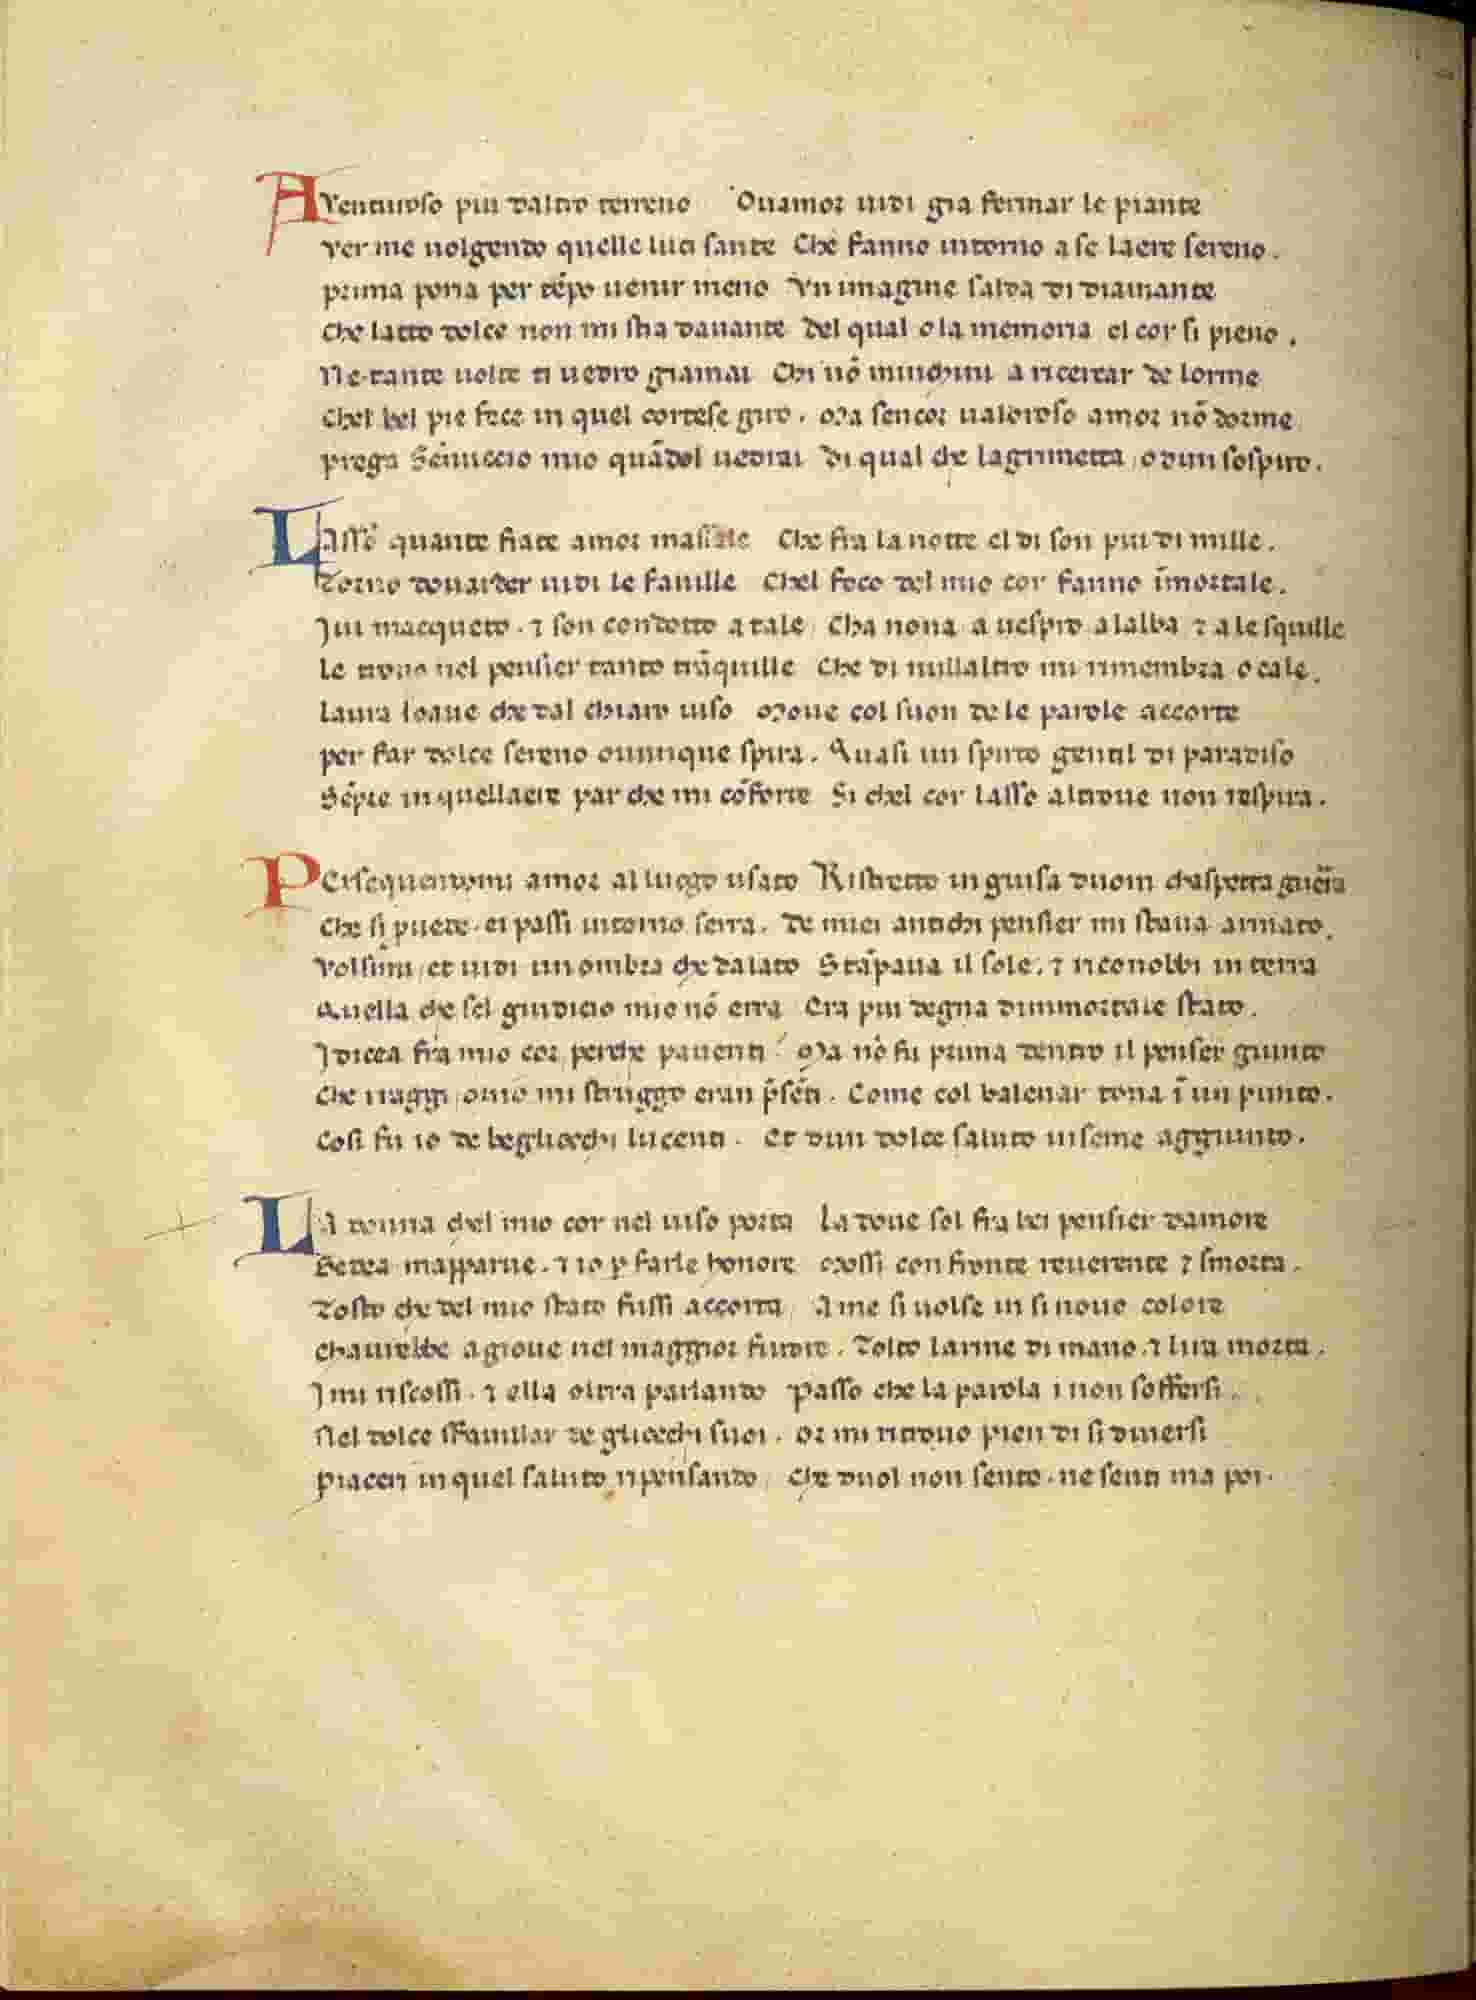 AVenturoso piu daltro terreno Ouamor uidi gia fermar le piante
Ver me uolgendo quelle luci sante Che fanno intorno a se laere sereno.
Prima poria per tẽpo uenir meno Vn imagine salda di diamante
Che latto dolce non mi stia dauante Del qual o la memoria el cor si pieno.
Ne tante uolte ti uedro giamai Chi nõ minchini a ricercar de lorme
Chel bel pie fece in quel cortese giro. Ma sencor ualoroso amor nõ dorme
Prega Sẽnuccio mio quãdol uedrai Di qual che lagrimetta, o dun sospiro.
LAsso quante fiate amor massale Che fra la notte el di son piu di mille.
Torno douarder uidi le fauille Chel foco del mio cor fanno ĩmortale.
Iui macqueto. ⁊ son condotto a tale Cha nona a uespro a lalba ⁊ a le squille
Le trouo nel pensier tanto trãquille Che di nullaltro mi rimembra o cale.
Laura soaue che dal chiaro uiso Moue col suon de le parole accorte
Per far dolce sereno ouunque spira. Quasi un spirto gentil di paradiso
Sẽpre in quellaere par che mi cõforte Si chel cor lasso altroue non respira.
PErsequendomi amor al luogo usato Ristretto in guisa duom chaspetta guerra
Che si puede. ei passi intorno serra. De miei antichi pensier mi staua armato.
Volsimi et uidi un ombra che da lato Stãpaua il sole. ⁊ riconobbi in terra
Quella che sel giudicio mio nõ erra Era piu degna dimmortale stato.
I dicea fra mio cor perche pauenti? Ma nõ fu prima dentro il penser giunto
Che i raggi ouio mi struggo eran p̃sẽti. Come col balenar tona ĩ un punto.
Cosi fu io de begliocchi lucenti. Et dun dolce saluto inseme aggiunto.
LA donna chel mio cor nel uiso porta La doue sol fra bei pensier damore
Sedea mapparue. ⁊ io ꝑ farle honore Mossi con fronte reuerente ⁊ smorta.
Tosto che del mio stato fussi accorta A me si uolse in si nouo colore
Chaurebbe a gioue nel maggior furore. Tolto larme di mano. ⁊ lira morta.
I mi riscossi. ⁊ ella oltra parlando Passo che la parola i non soffersi.
Nel dolce sfauillar de gliocchi suoi. Or mi ritrouo pien di si diuersi
Piaceri in quel saluto ripensando Che duol non sento. ne senti ma poi.